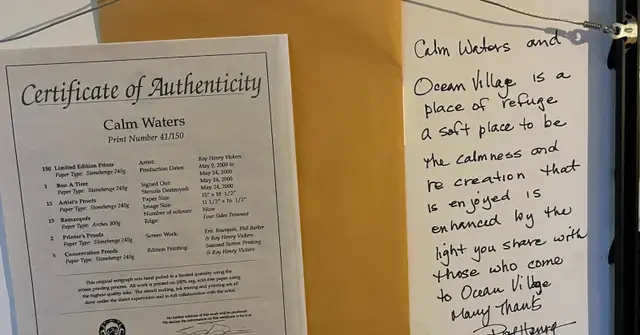 Certificate of Authenticity
Calm Waters
Print Number 41/150
150 Limited Edition Prints
Paper Type: Stonehenge 245g
1 Bon A Tirer
Paper Type: Stonehenge 245g
15 Artist's Proofs
Paper Type: Stonehenge 245g
15 Remarques
Paper Type: Arches 300g
2 Printer's Proofs
Paper Type: Stonehenge 245g
5 Conservation Proofs
Paper Type: Stonehenge 245g
Artist: Roy Henry Vickers
Production Dates: May 9, 2000 to
May 24, 2000
Signed Out: May 24, 2000
Stencils Destroyed: May 24, 2000
Paper Size: 15" x 18 1/2"
Image Size: 11 1/2" x 16 1/2"
Number of colours: Nine
Edge: Four Sides Trimmed
Screen Work: Eric Bourquin, Phil Barker
& Roy Henry Vickers
Edition Printing: Summit Screen Printing
& Roy Henry Vickers
This original serigraph was hand pulled in a limited quantity using the
screen printing process. All work is printed on 100% rag, acid-free paper using
the highest quality inks. The stencil making, ink mixing and printing are all
done under the direct supervision and in full collaboration with the artist.
No further editions of this work are to be produced.
We declare the information on this certificate to be true.
Calm Waters and
Ocean Village is a
place of refuge
a soft place to be
the calmness and
re creation that
is enjoyed is
enhanced by the
light you share with
those who come
to Ocean Village
Many Thanks